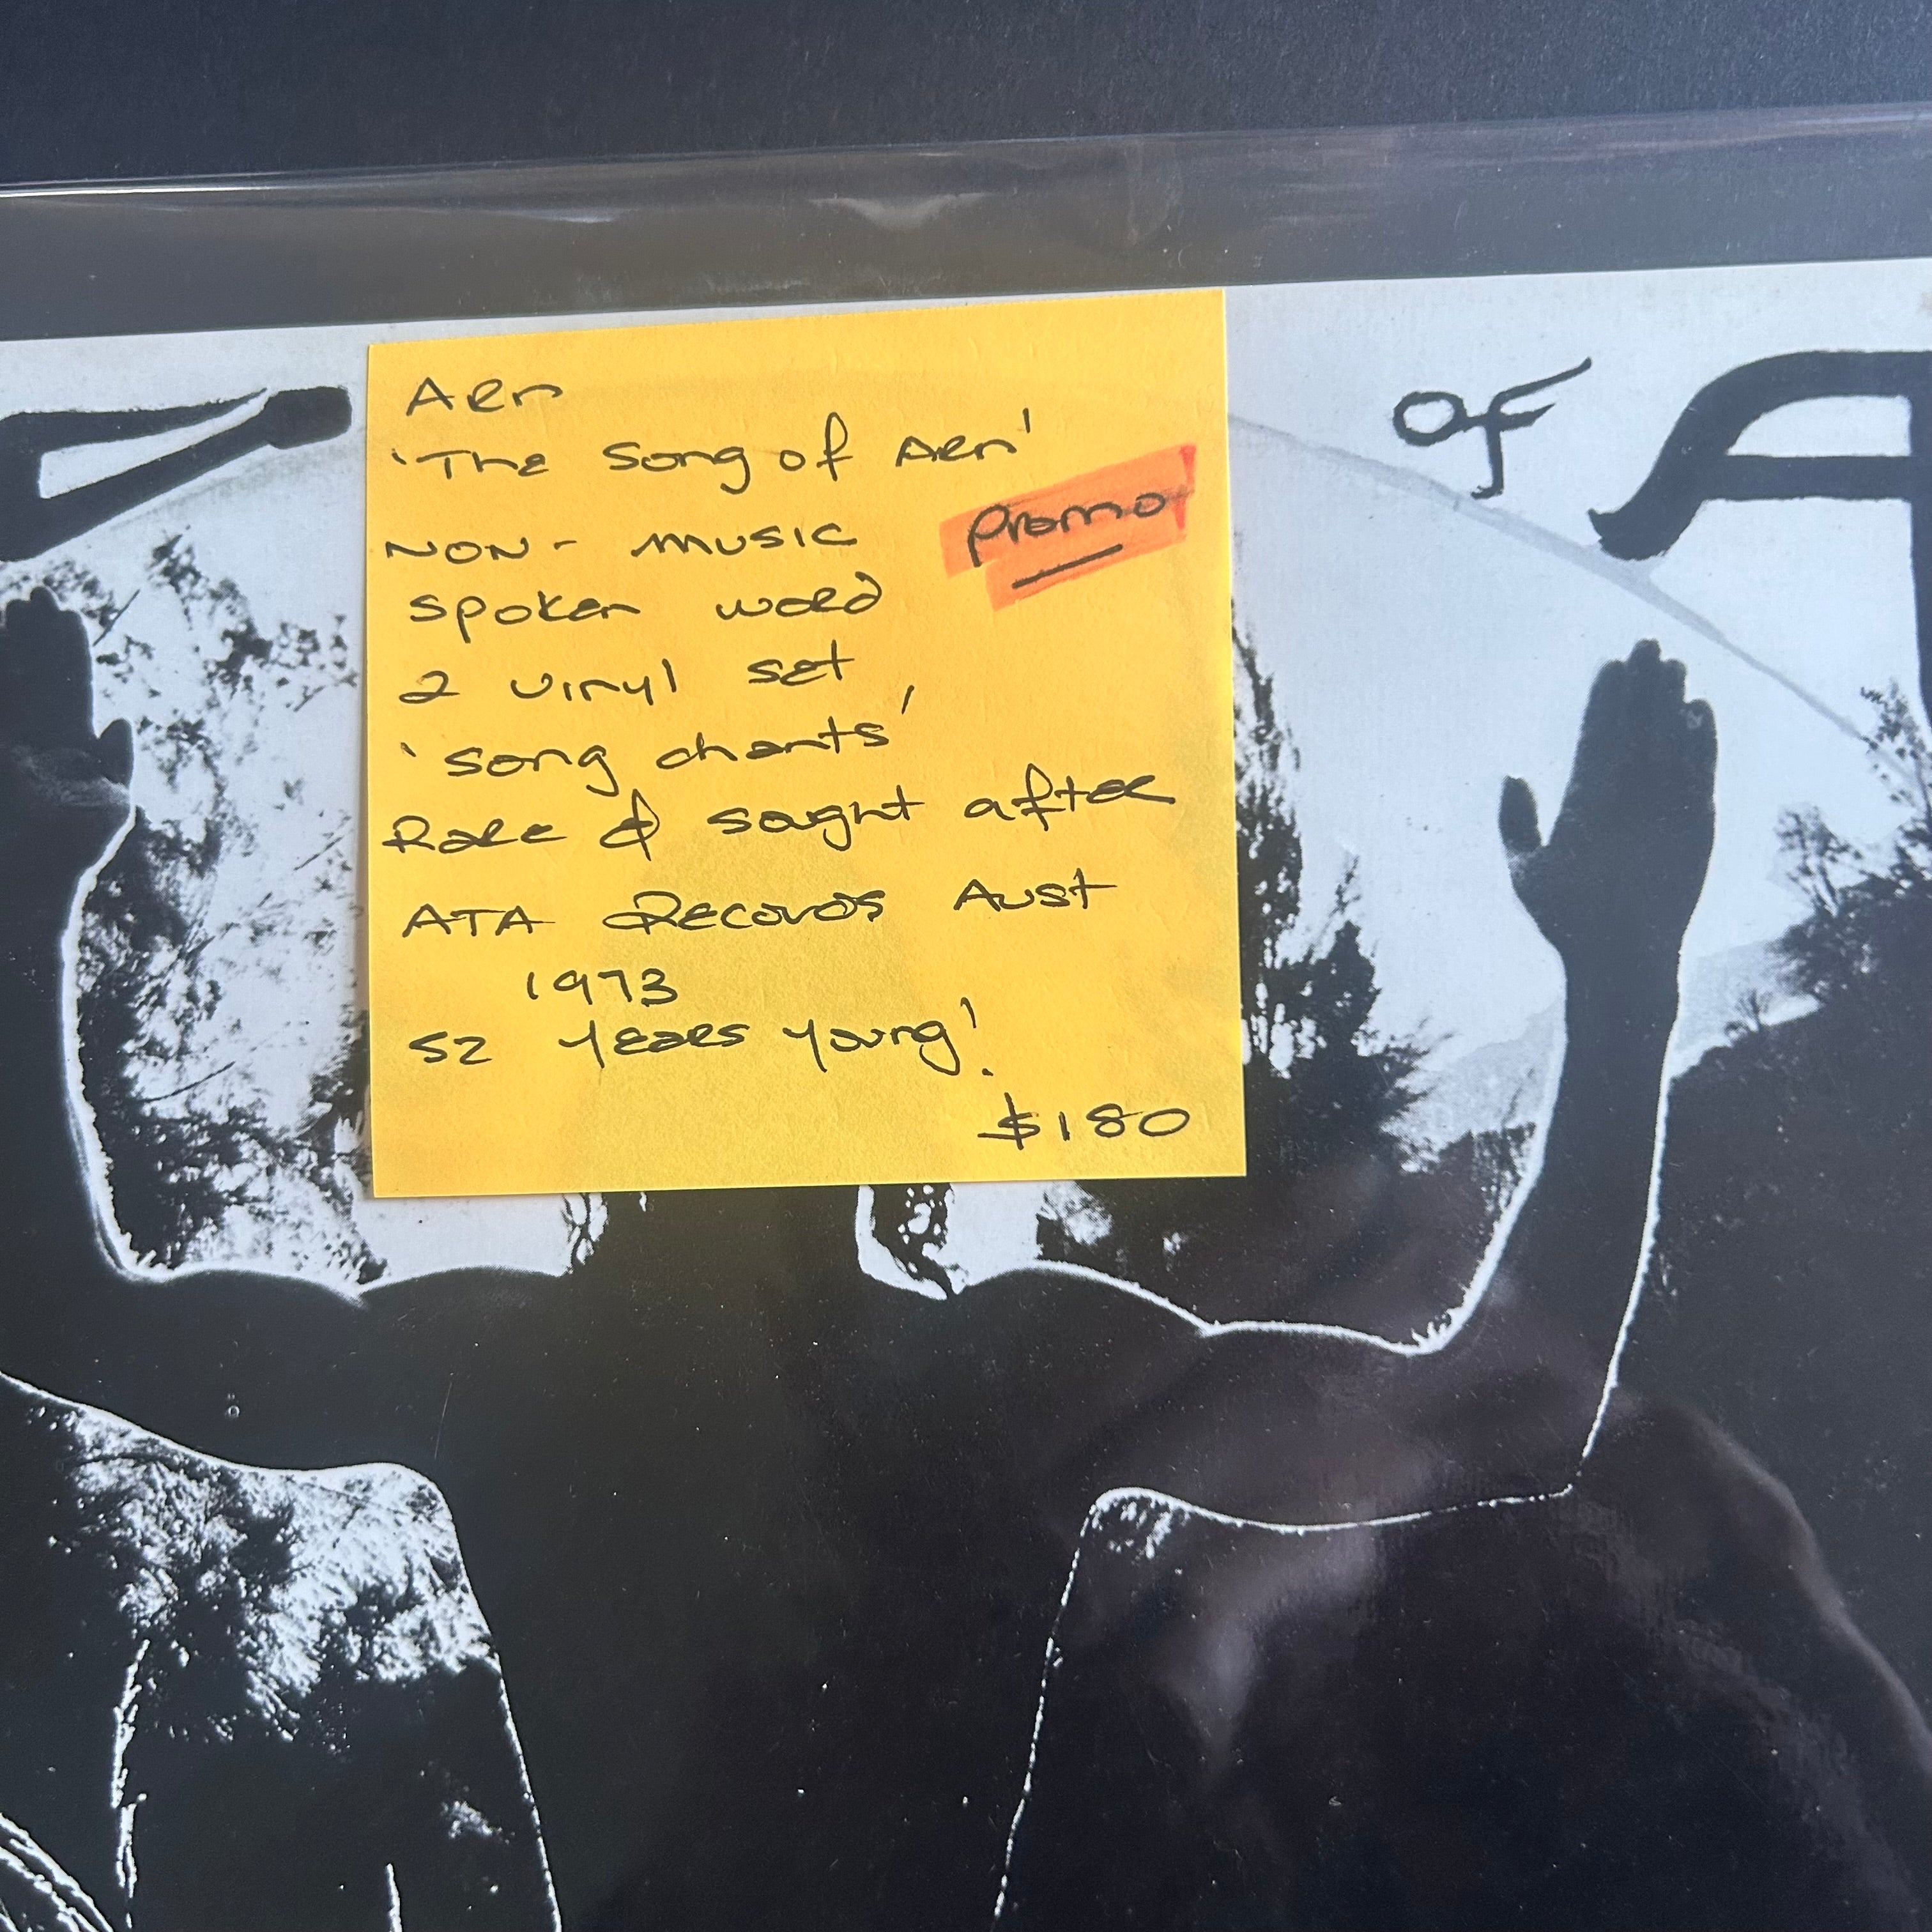 of
Aen
'The Song of Aen'
NON- MUSIC
Promo
Spoken word
2 vinyl set
'Song chants'
Rare & soght after
ATA Records Aust
1973
52 Years young!
$180